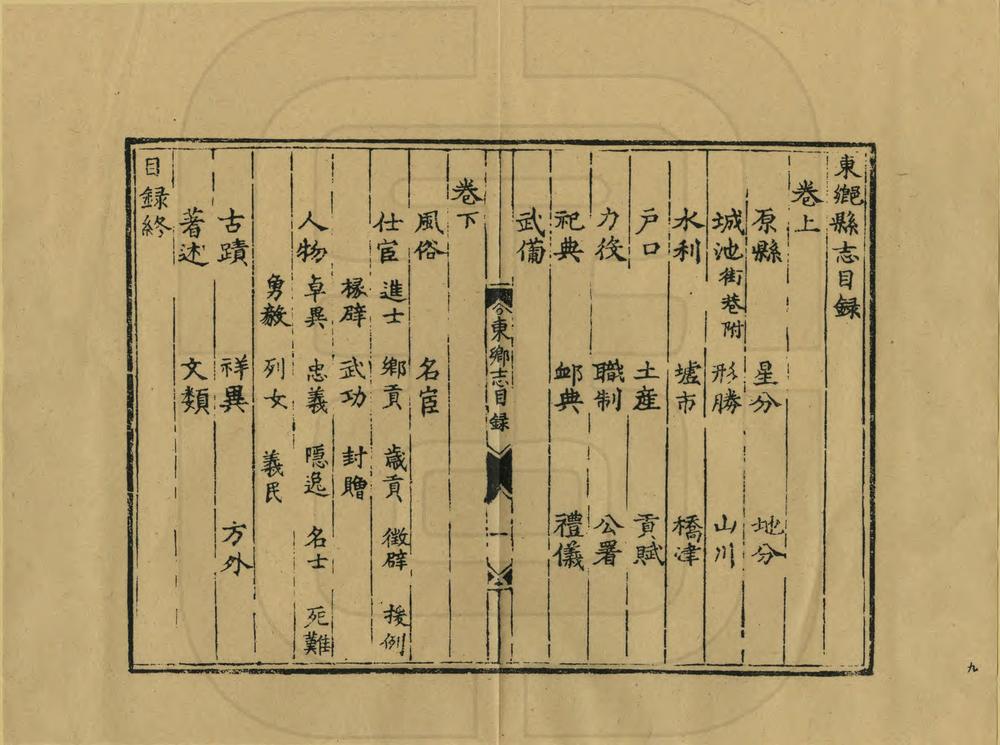 東鄉縣志目録
卷上
原縣 星分 地分
城池街巷附 形勝 山川
水利 墟市 橋津
戸口 土産 貢賦
力役 職制 公署
祀典 卹典 禮儀
武備
東鄉志目録 一
卷下
風俗 名宦
仕宦 進士 鄉貢 歳貢 徵辟 援例
掾辟 武功 封贈
人物 卓異 忠義 隱逸 名士 死難
勇毅 列女 義民
古蹟 祥異 方外
著述 文類
目録終
九